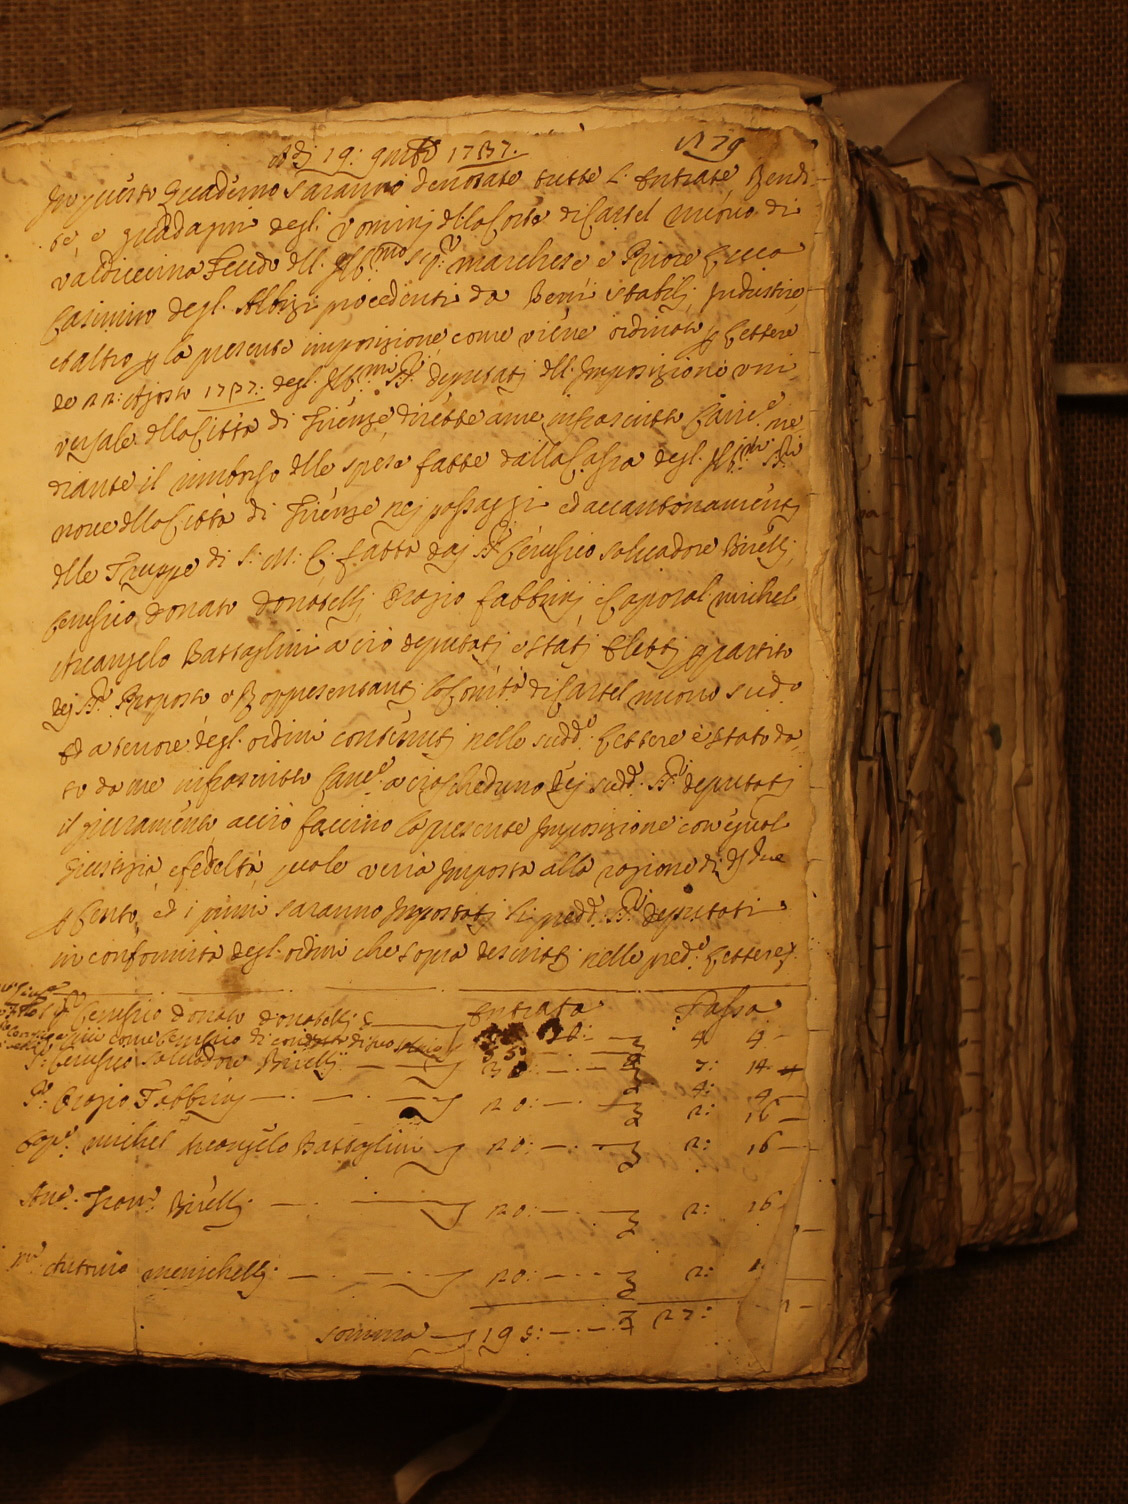 Adi 19: gnĩo 1737. N 79
In questo Quaderno saranno denotate tutte l: Entrate, Rendi
te, e guadagni degl: Uominj dlla Corte di Castel nuovo di
Valdicecina Feudo dll: Ill.mo Sig.r Marchese e Priore Luca
Casimiro degl: Albizi procedenti da Beni stabilj, Industrie,
et altro p la presente imposizione, come viene ordinato p Lettere
de 22: Agosto 1737: degl: Ill.mi SS.ri deputatj dll: Imposizione uni,
versale dlla Città di Firenze, dirette a me infrascritto Canc.e me
diante il rimborso dlle spese fatte dalla Cassa degl: Ill.mi SS.ri
nove dlla Città di Firenze nej passaggi ed accantonamentj
dlle Truppe di S: M: C: fatta daj SS.ri Cerusico Salvadore Birellj,
Cerusico donato donatellj, Orazio fabbrinj, e Caporal michel
Arcangelo Battaglini a ciò deputatj e statj Elettj p partito
dej SS.ri Proposto e Rappresentantj la Comità di Castel nuovo sud.o
Ed a tenore degl: ordini contenutj nelle sudd.e Lettere è stato da,
to da me infrascritto Canc.e a ciascheduno dej sudd.i SS.ri deputatj
il giuramento acciò faccino la presente Imposizione con egual
giustizia, e fedeltà, quale verrà Imposta alla ragione di due
p Cento, ed i primi saranno Impostatj li predd.i SS.ri deputati
in conformità degl: ordini che sopra descrittj nelle pred.e Lettere
Entrata Tassa
Cerusico Donato donatellj 4 4
come Cerusico di
S.r Cerusico Salvadore Birellj 3: 14
4: 4
S.r Orazio Fabbrinj 20: 2: 16
Cap.e michel Arcangelo Battaglini 20: 2: 16
Fran.o Birellj 20: 2: 16
Antonio menichellj 20: 2:
Somma 195: 27: